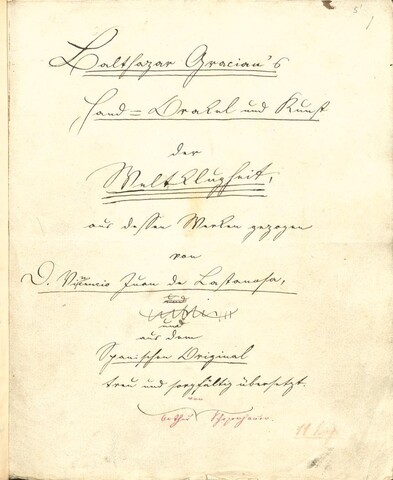 5
Balthazar Gracian's
Hand=Orakel und Kunst
der
Weltklugheit,
aus dessen Werken gezogen
von
D. Vincencio Juan de Lastanosa,
und
und
aus dem
Spanischen Original
treu und sorgfältig übersetzt.
von
Arthur Schopenhauer.